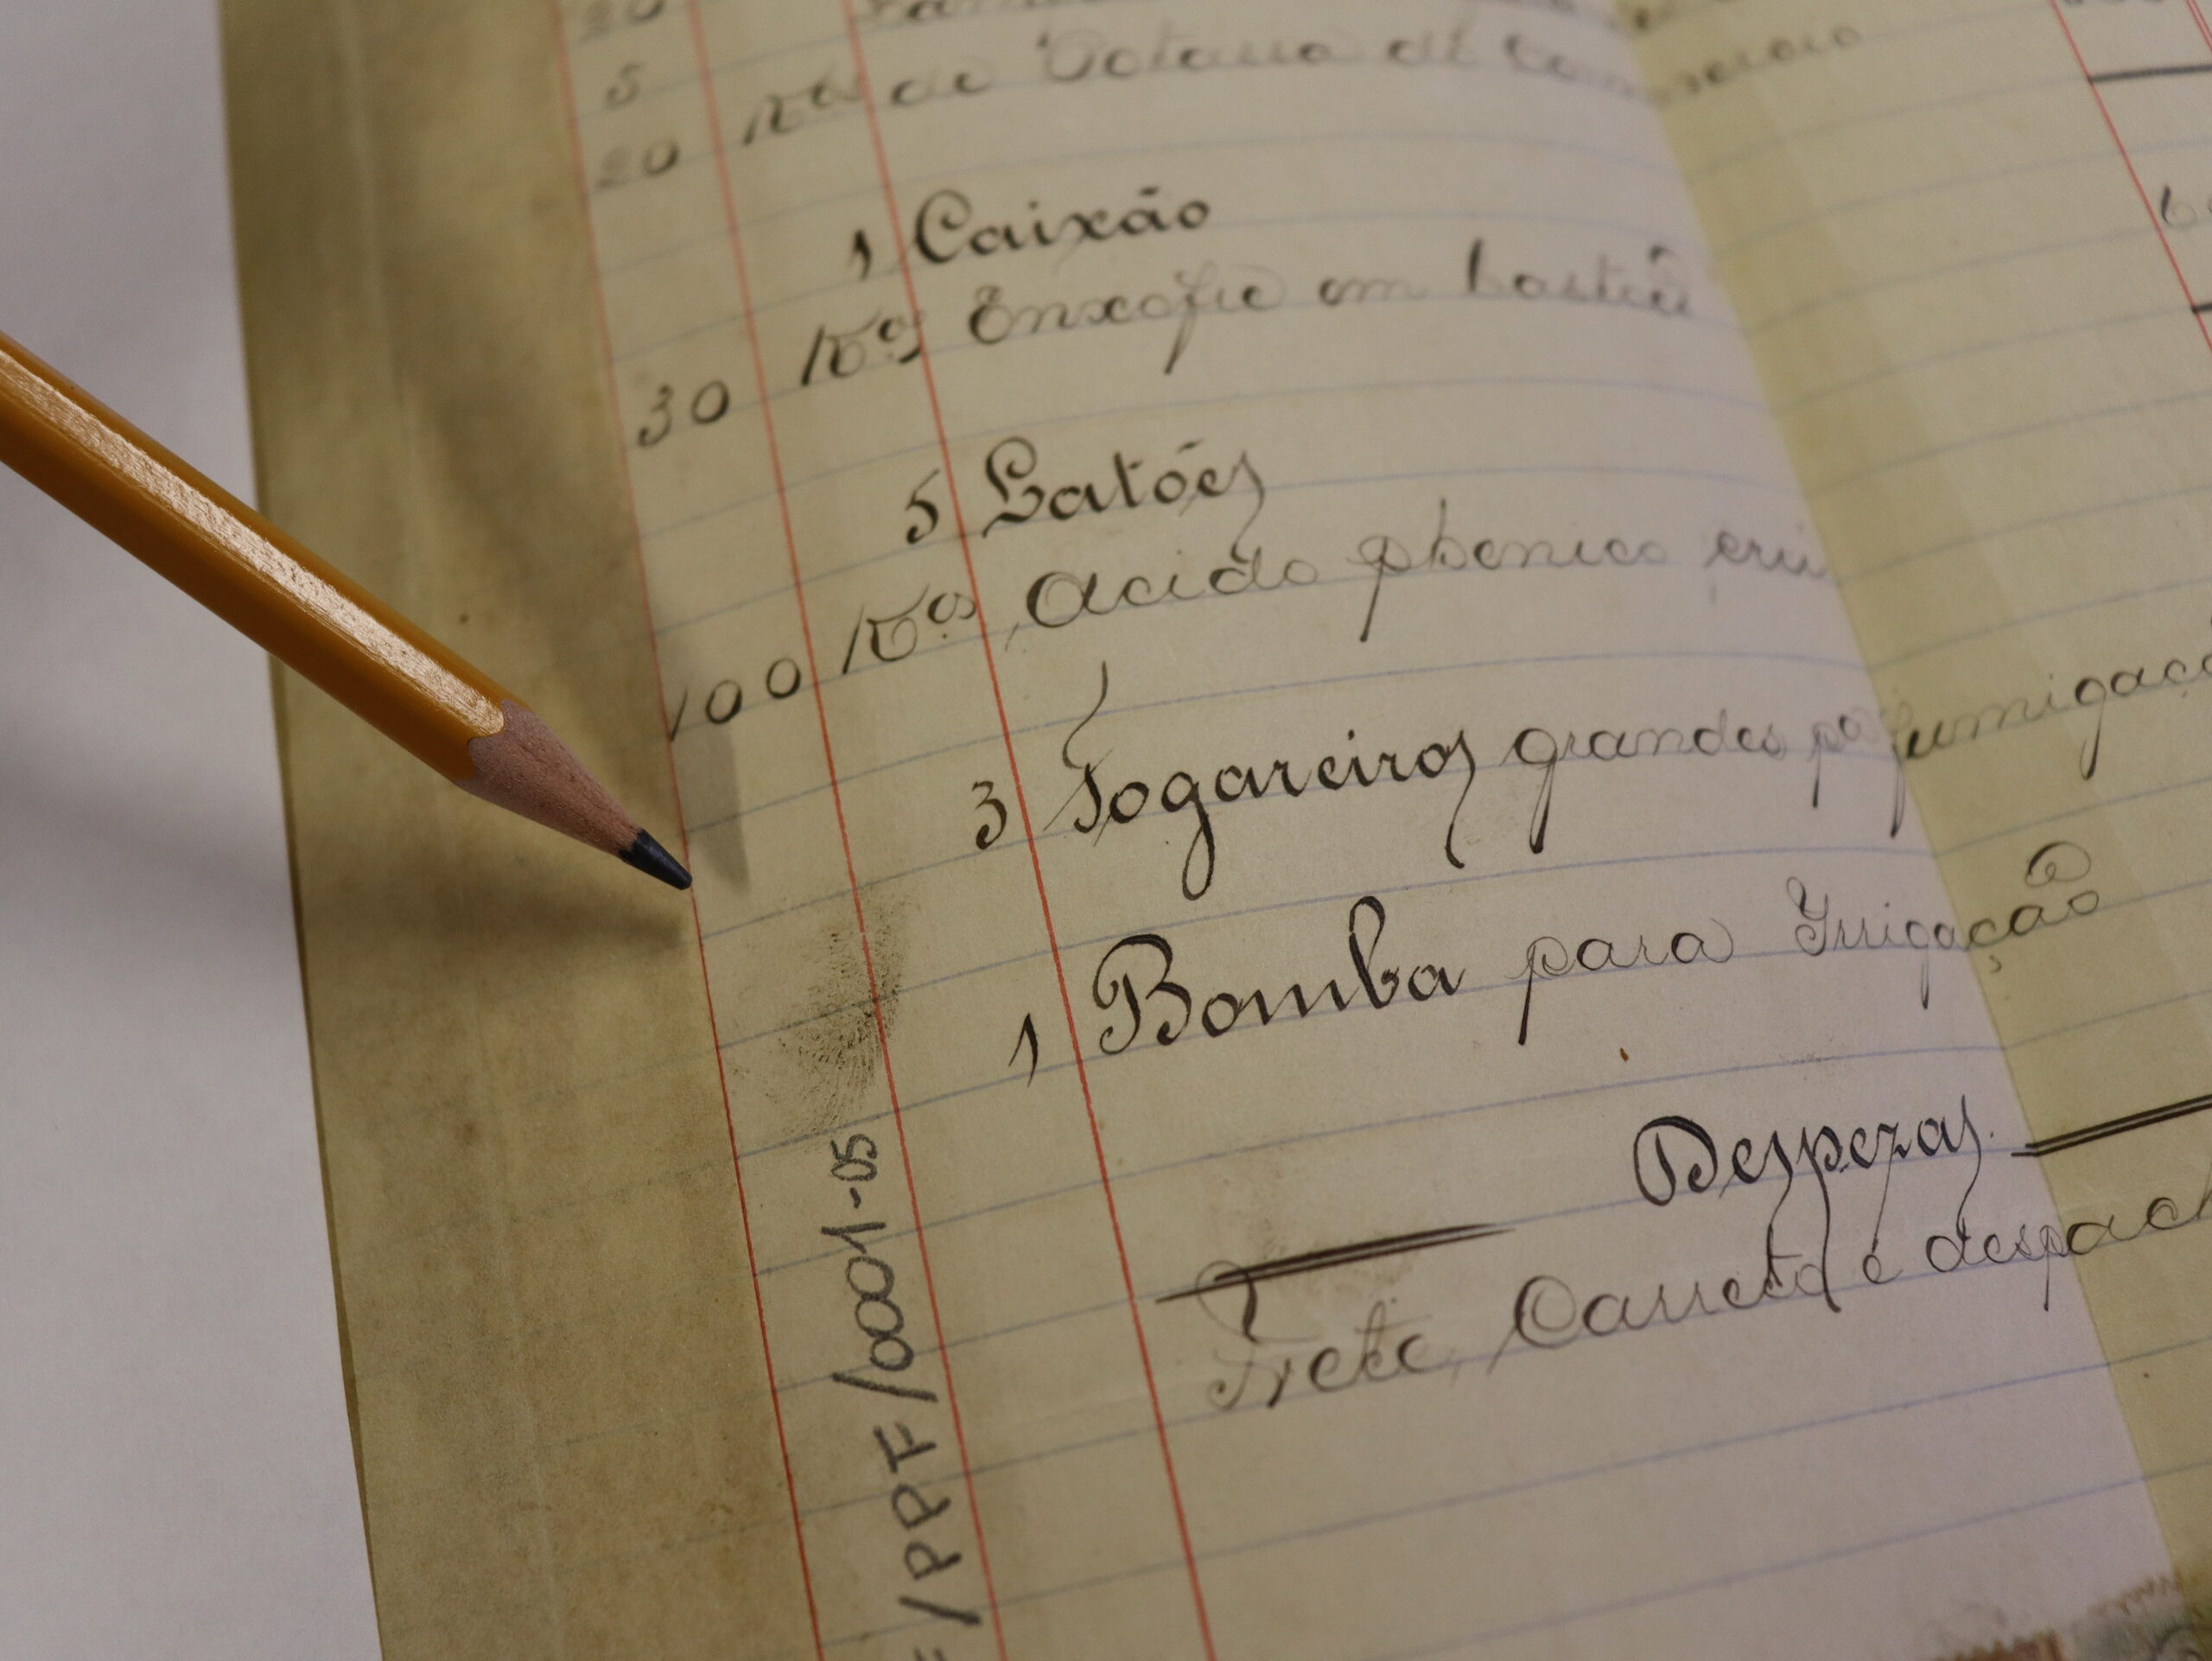 20
5
20 K.os de Potassa do Commercio
1 Caixão
30 K.os Enxofre em bastões
5 Latões
100 K.os, Acido phenico cru
3 Fogareiros grandes pa fumigaçõ
1 Bomba para Irrigação
Despezas.
Frete, Carreto e despach
/PPF/0001-05